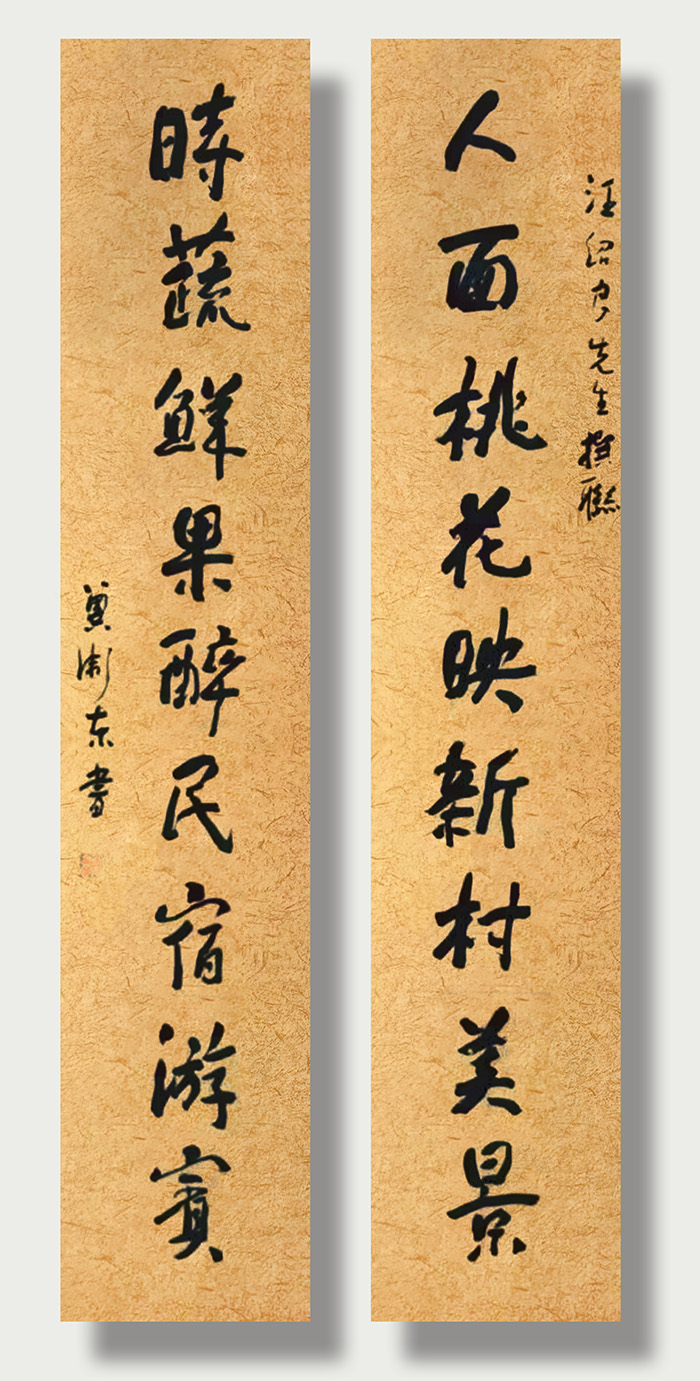 汪紹先生撰聯
人面桃花映新村美景
時蔬鮮果醉民宿游賓
衛東書